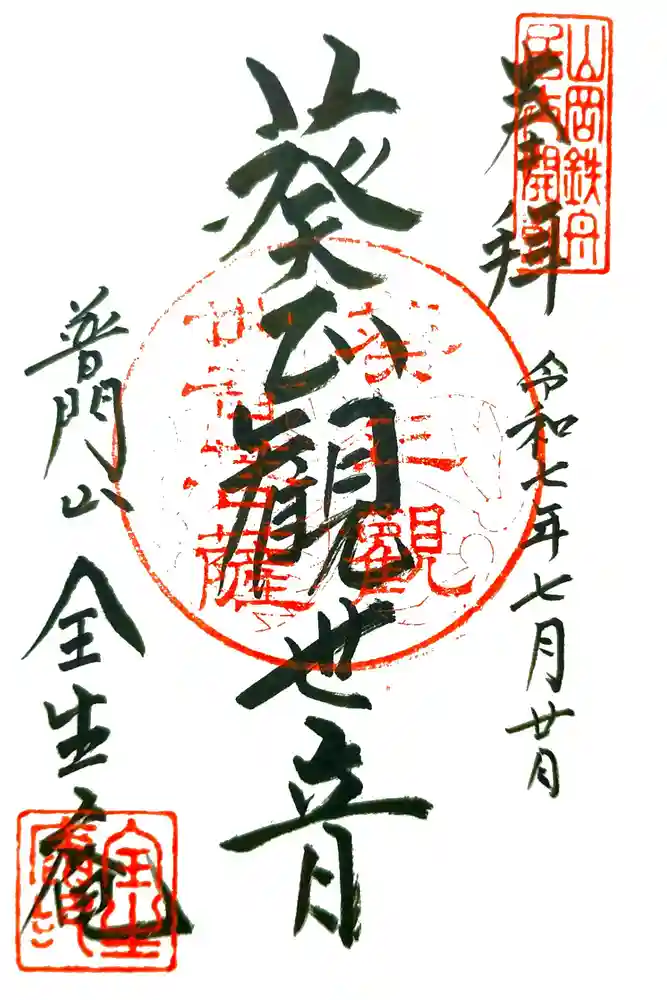 山岡鉄舟
居士開基
奉拝
令和七年七月廿日
葵正観世音
葵正觀
世音菩薩
普門山 全生庵
全生